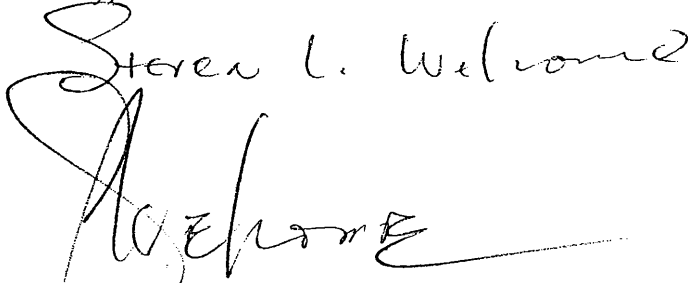 Steven L. Welcome
SWElcomE